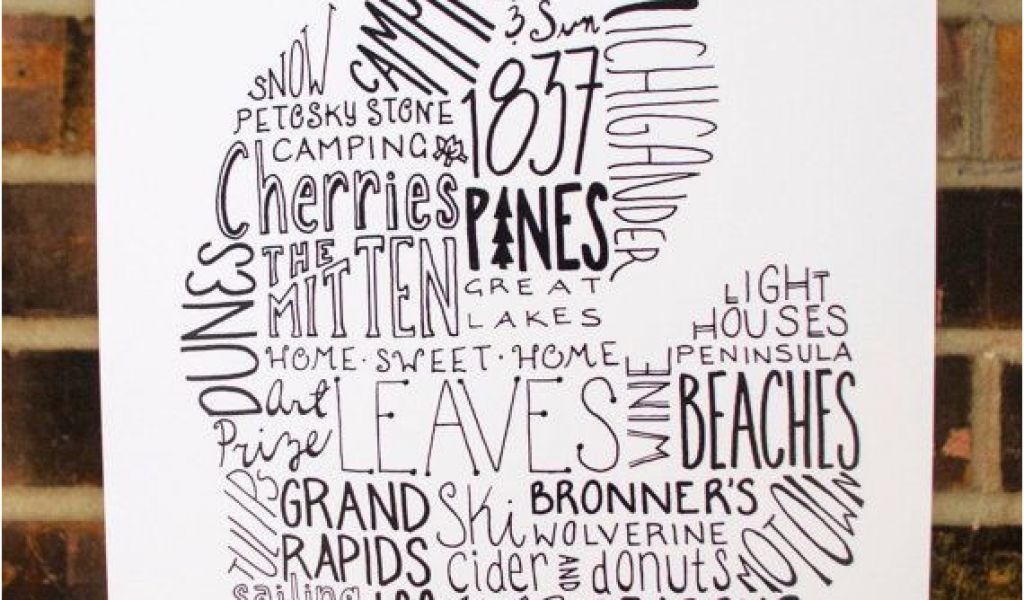 & Sun
MICHIGANDER
SNOW
1837
PETOSKY STONE
CAMPING
Cherries
PINES
DUNES
THE
MITTEN
GREAT
LAKES
LIGHT
HOUSES
HOME · SWEET · HOME
WINE
PENINSULA
Art
Prize
LEAVES
BEACHES
TULIPS
GRAND
RAPIDS
Ski
BRONNER'S
WOLVERINE
MOTOWN
cider AND donuts
sailing